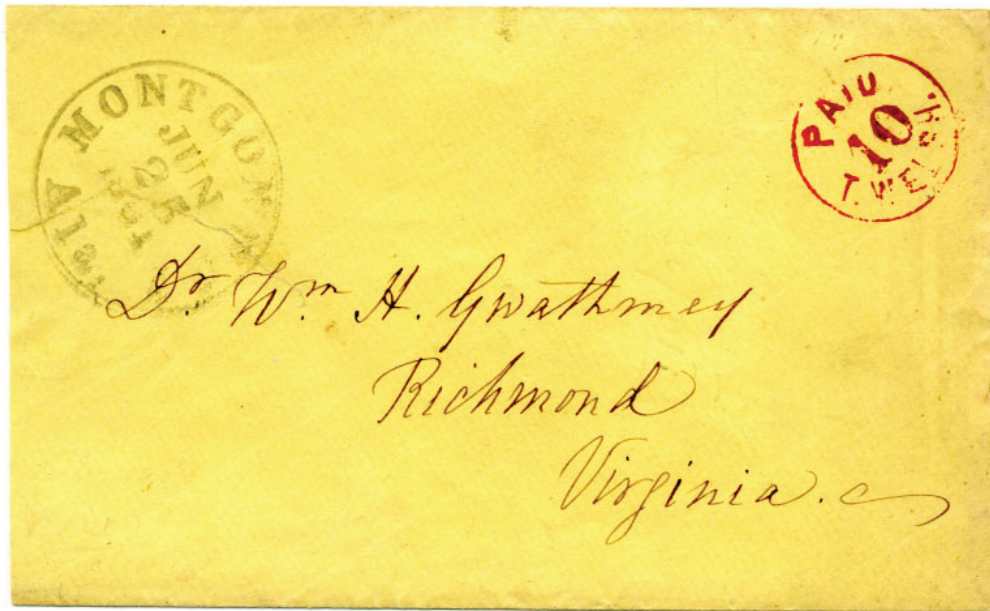 MONTGOMERY
Ala.
JUN
25
1861
PAID
10
T. WELSH.
Dr. Wm H. Gwathmey
Richmond
Virginia.